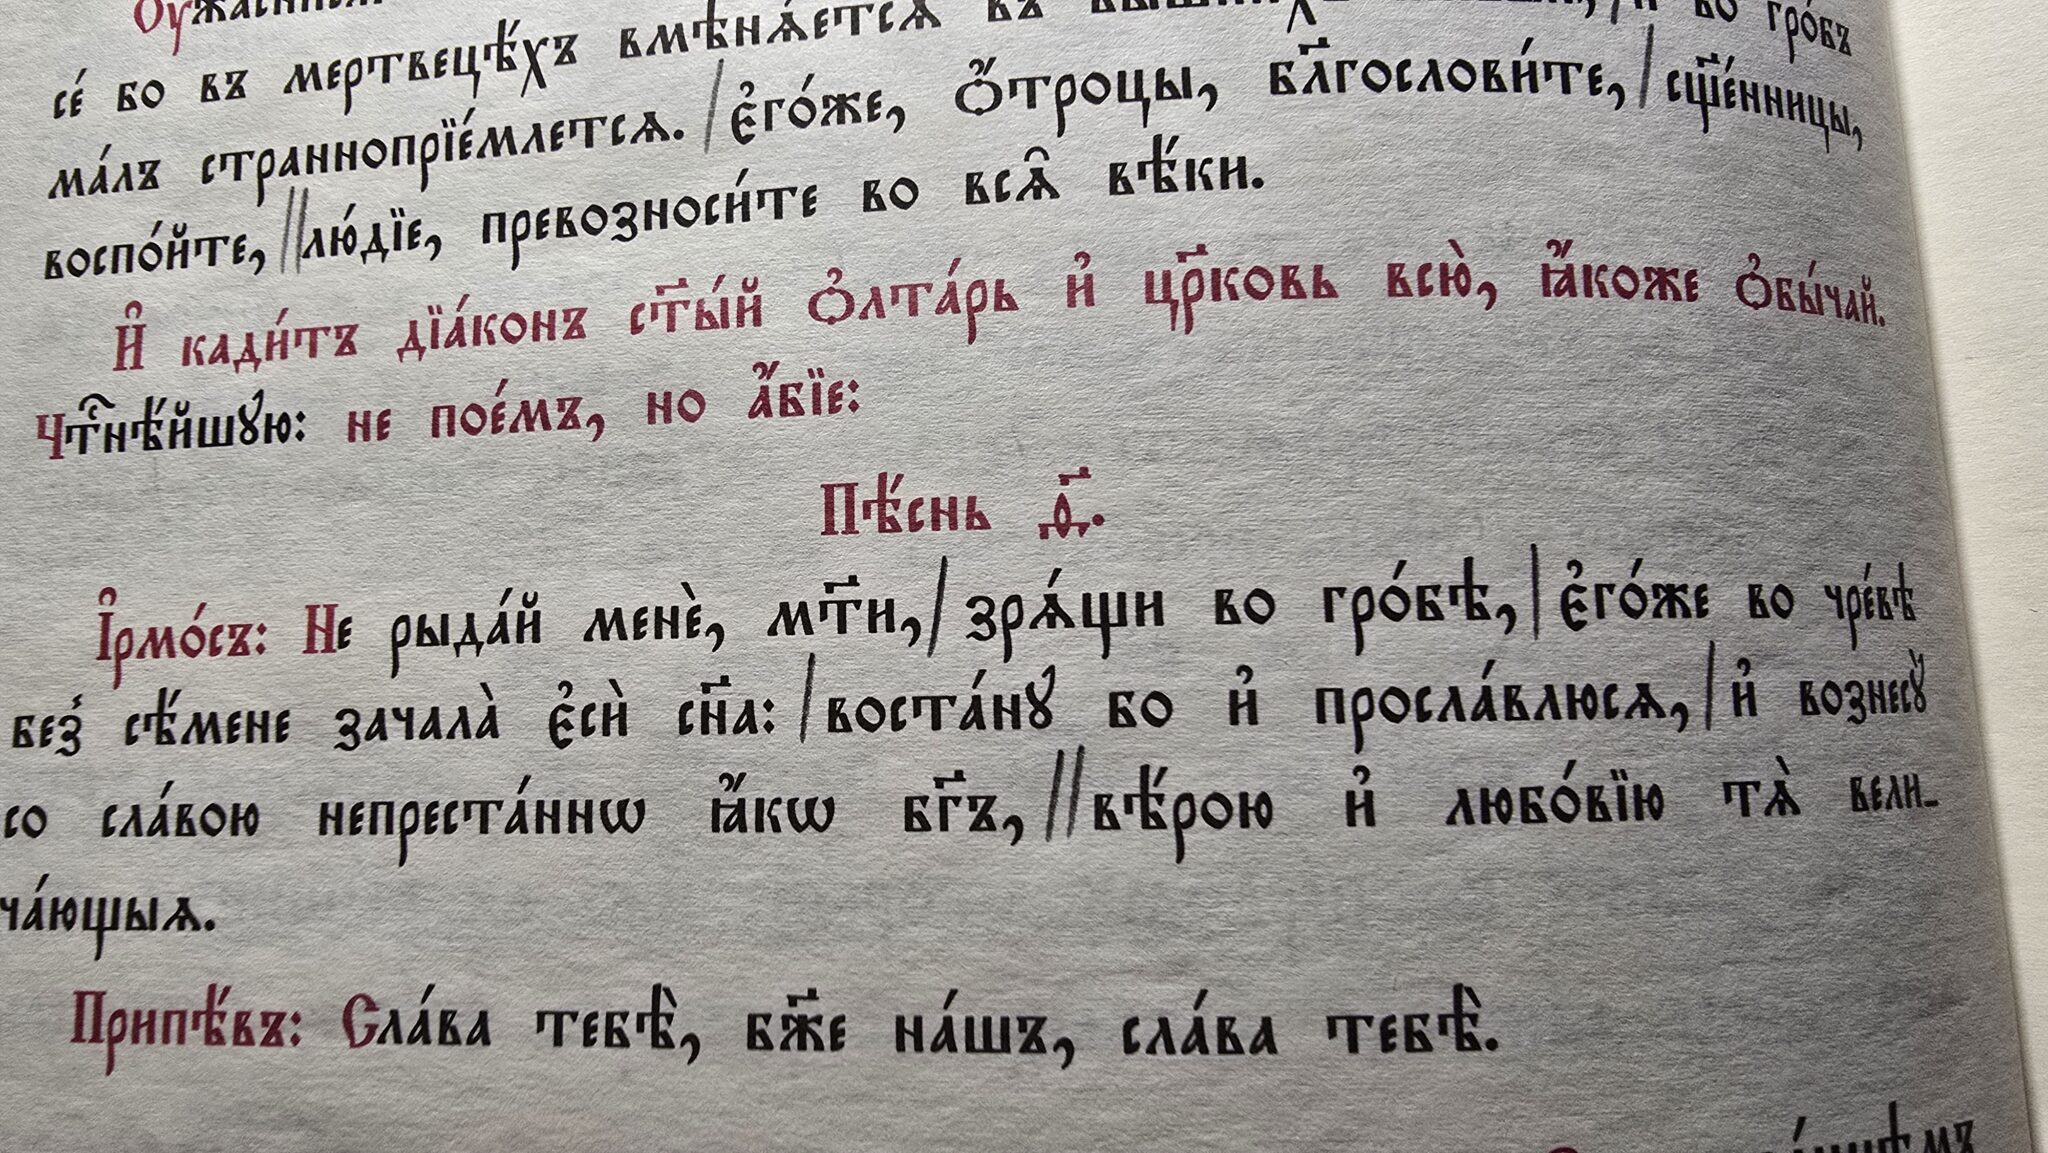 Оу҆жаси́ся
се́ бо въ мертвецѣ́хъ вмѣнѧ́етсѧ въ во гро́бъ
ма́лъ страннопрїе́млетсѧ. / є҆го́же, ѻ҆́троцы, бл҃гослови́те, / сщ҃е́нницы,
воспо́йте, // лю́дїе, превозноси́те во всѧ̑ вѣ́ки.
И҆̑ кади́тъ дїа́конъ ст҃ы́й ѻ҆лта́рь и҆ цр҃ковь всю̀, ꙗ҆́коже ѻ҆бы́чай.
Чтⷭ҇нѣ́йшꙋю: не пое́мъ, но а҆́бїе:
Пѣ́снь ѳ҃.
І҆рмо́съ: Не рыда́й менє̀, мт҃и, / зрѧ́щи во гро́бѣ, / є҆го́же во чре́вѣ
без̾ сѣ́мене зачала̀ є҆сѝ сн҃а: / воста́нꙋ бо и҆ просла́влюсѧ, / и҆ вознесꙋ̀
со сла́вою непреста́ннѡ ꙗ҆́кѡ бг҃ъ, // вѣ́рою и҆ любо́вїю тѧ̀ вели-
ча́ющыѧ.
Припѣ́въ: Сла́ва тебѣ̀, бж҃е на́шъ, сла́ва тебѣ̀.